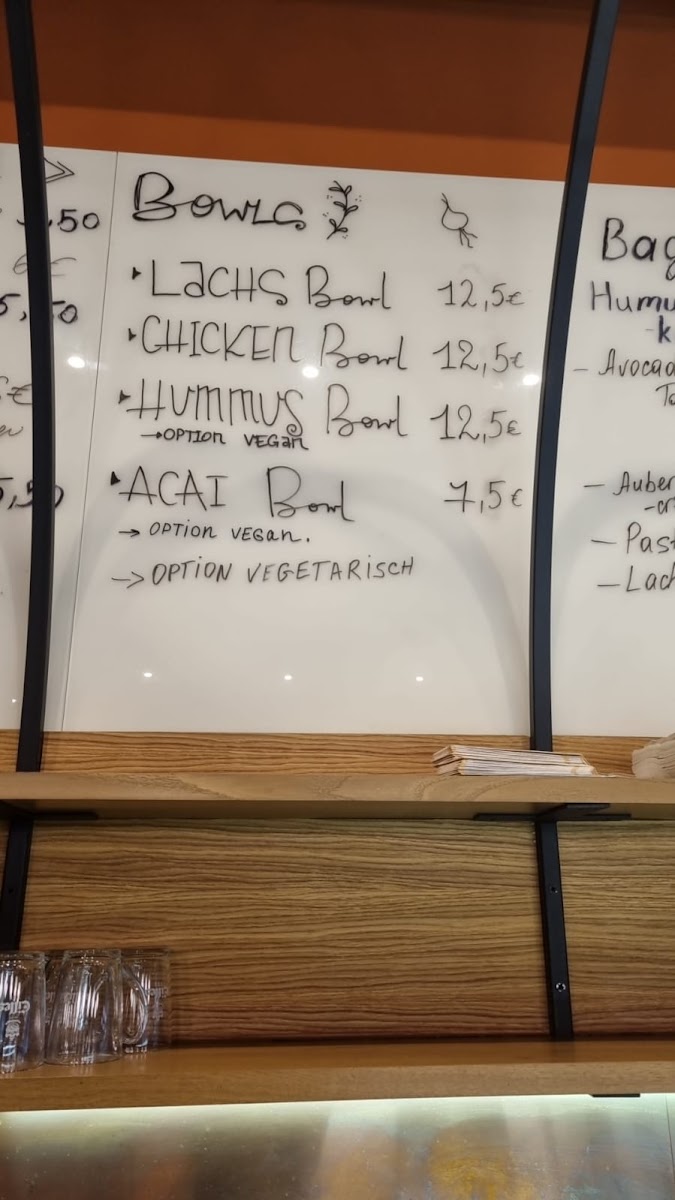 ,50
5,50
5,50
Bowls
▸ Lachs Bowl 12,5€
▸ CHICKEN Bowl 12,5€
▸ Hummus Bowl 12,5€
→OPTION VEGAN
▸ ACAI Bowl 7,5€
→ OPTION VEGAN.
→ OPTION VEGETARISCH
Bag
Humu
- Avocad
- Auber
- Past
- Lach